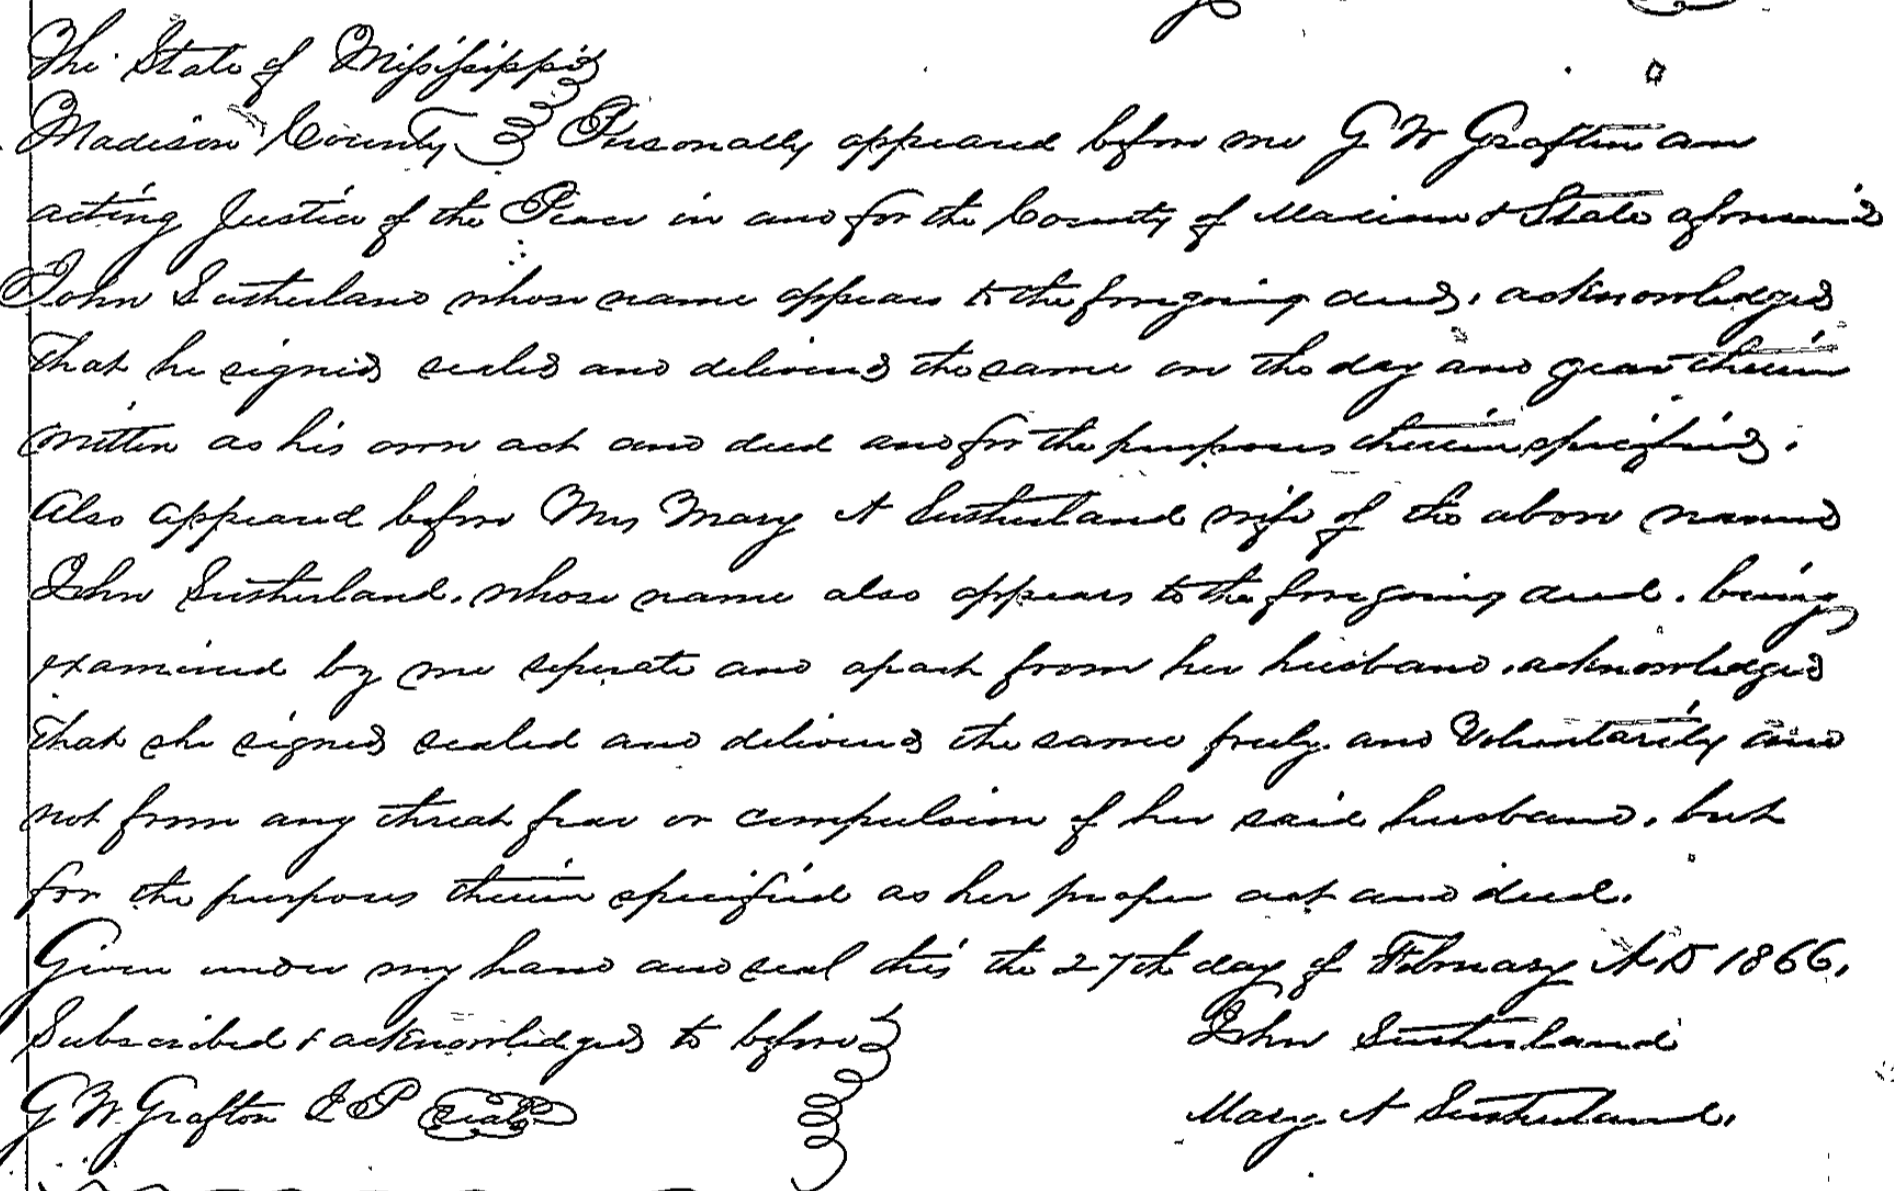 The State of Mississippi
Madison County Personally appeared before me G. W Grafton an
acting Justice of the Peace in and for the County of Madison & State aforesaid
John Sutherland whose name appears to the foregoing deed, acknowledged
that he signed sealed and delivered the same on the day and year therein
written as his own act and deed and for the purposes therein specified.
Also appeared before Me, Mary A Sutherland wife of the above named
John Sutherland. whose name also appears to the foregoing deed. being
examined by me seperate and apart from her husband, acknowledged
that she signed sealed and delivered the same freely. and Voluntarily and
not from any threat fear or compulsion of her said husband, but
for the purposes therein specified as her proper act and deed.
Given under my hand and seal this the 27th day of February A D 1866.
Subscribed & acknowledged to before John Sutherland
G W. Grafton J P Seal Mary. A Sutherland.